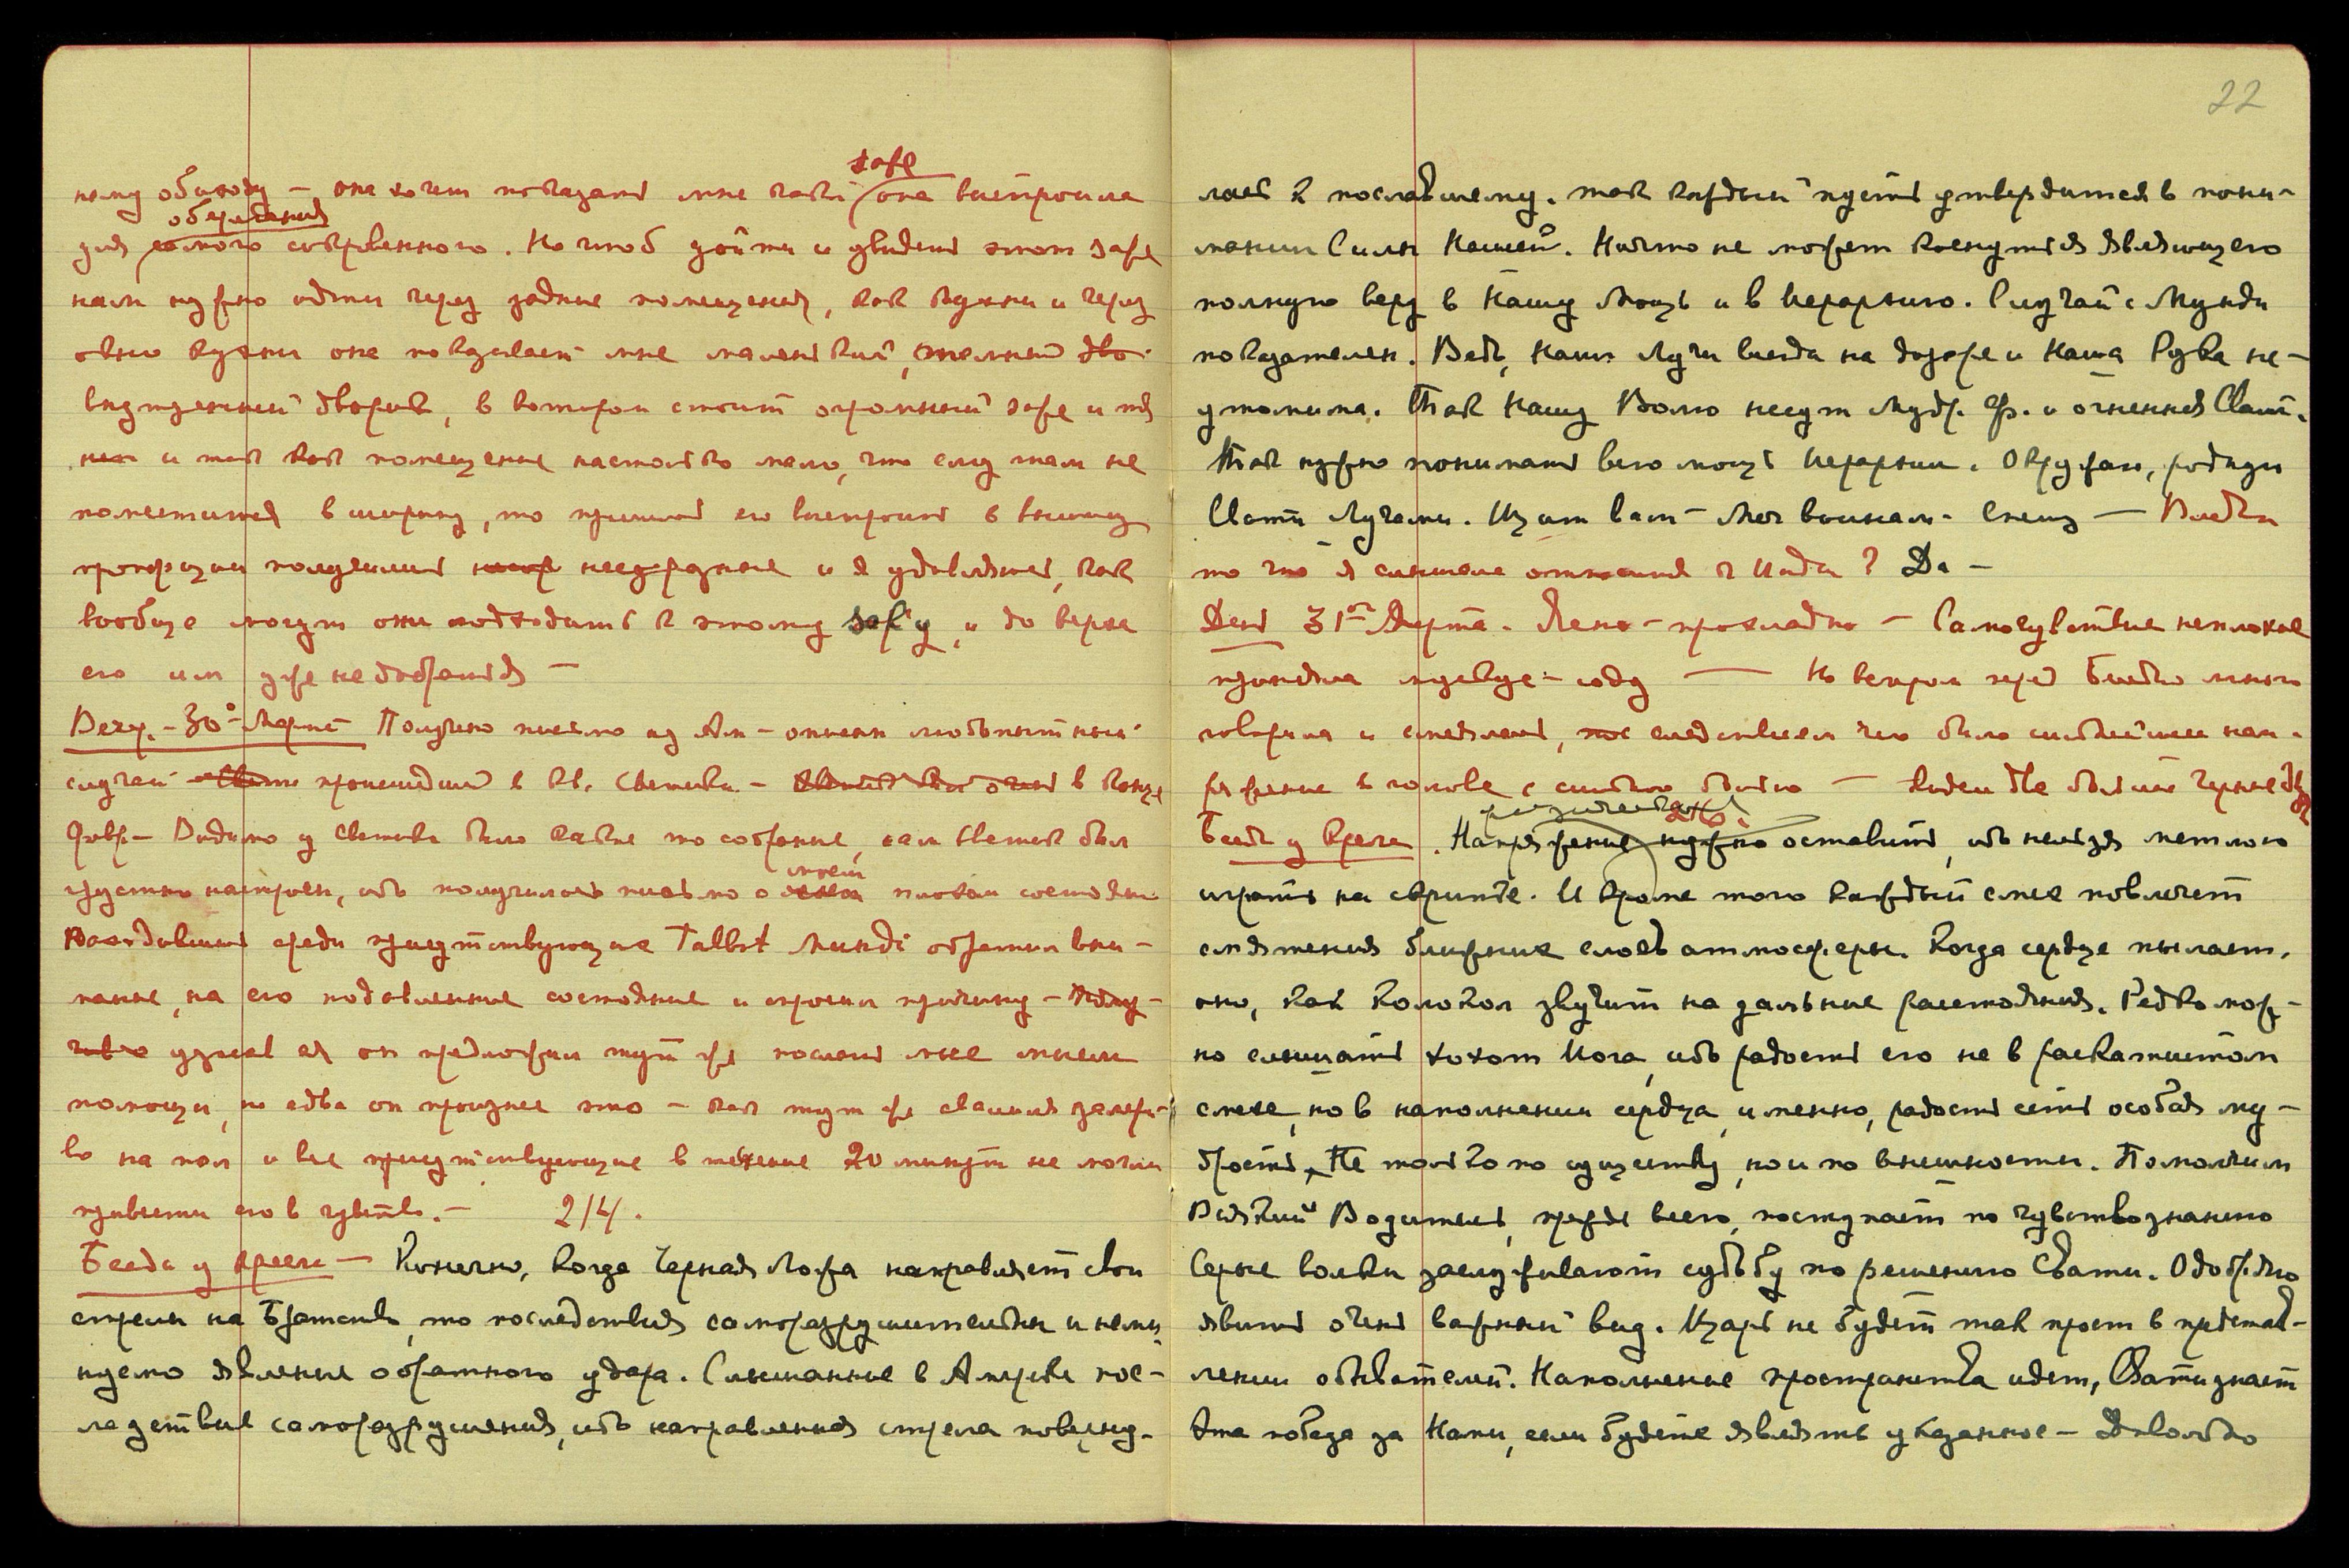 safe
ному обиходу – она хочет показать мне какой она выстроила
оберегания
для самого сокровенного. Но чтоб дойти и увидеть этот safe
нам нужно идти через задние помещения, как кухни и через
окно кухни она показывает мне маленький, темный дво-
дворик, в котором стоит огромный safe и
и так как помещение настолько мало, что ему там не
поместиться в ширину, то пришлось его выстроить в вышину
пропорции получились несуразные и я удивляюсь, как
вообще могут они подходить к этому safe'у, и до верха
его им уже не добраться –
Веч. – 30º – Марта – Получено письмо из Ам – описан любопытный
случай произшедший в кв. Светика – в конце
Февр – Видимо у Светика было какое то собрание, сам Светик был
моем
грустно настроен, ибо получилось письмо о плохом состоянии
Находившийся среди присутствующих Talbot Mundi обратил вни-
мание, на его подавленное состояние и спросил причину –
узнав ея он предложил тут же послать мне мысли
помощи, но едва он произнес это – как тут же свалился замер-
во на пол и все присутствующие в течение 20 минут не могли
привести его в чувство. – 214.
Беседа у Кресла – Конечно, когда Черная Ложа направляет свои
стрелы на Братство, то последствия саморазрушительны и неми-
нуемо явление обратного удара. Слышанное в Америке пос-
ледствие саморазрушения, ибо направленная стрела поверну-
22
лась к пославшему. Так каждый пусть утвердится в пони-
мании Силы Нашей. Ничто не может коснуться являющего
полную веру в Нашу Мощь и в Иерархию. Случай с Мунди
показателен. Ведь, Наши Лучи всегда на дозоре и Наша Рука не-
утомима. Так Нашу Волю несут Мудр. Ф. и огненная Свати.
Так нужно понимать всю мощь Иерархии. Окружаю, родную
Свати Лучами. Щит вам – Меч воинам – Спешу –
то что я слышала относится к Инди? Да –
День 31го Марта. Ясно – прохладно – Самочувствие неплохое
приняла мускус – соду – Но вечером перед Беседою много
говорила и смеялась, следствием чего было сильнейшее нап-
ряжение в голове с сильною болью –
раздражение 216.
Беседа у Кресла. Напряжение нужно оставить, ибо нельзя метлою
играть на скрипке. И кроме того каждый смех повлечет
смятения ближних слоев атмосферы. Когда сердце пылает,
оно, как колокол звучит на дальние расстояния. Редко мож-
но слышать хохот Иога, ибо радость его не в раскатистом
смехе, но в наполнении сердца, именно, радость есть особая му-
дрость. Не только по существу, но и по внешности. Помолчим
Всякий Водитель, прежде всего, поступает по чувствознанию
Серые волки заслуживают судьбу по решению Свати. Одобряю
явить очень важный вид. Царь не будет так прост в представ-
лении обывателей. Наполнение пространства идет, Свати знает
Эта победа за Нами, если будете являть указанное – Довольно